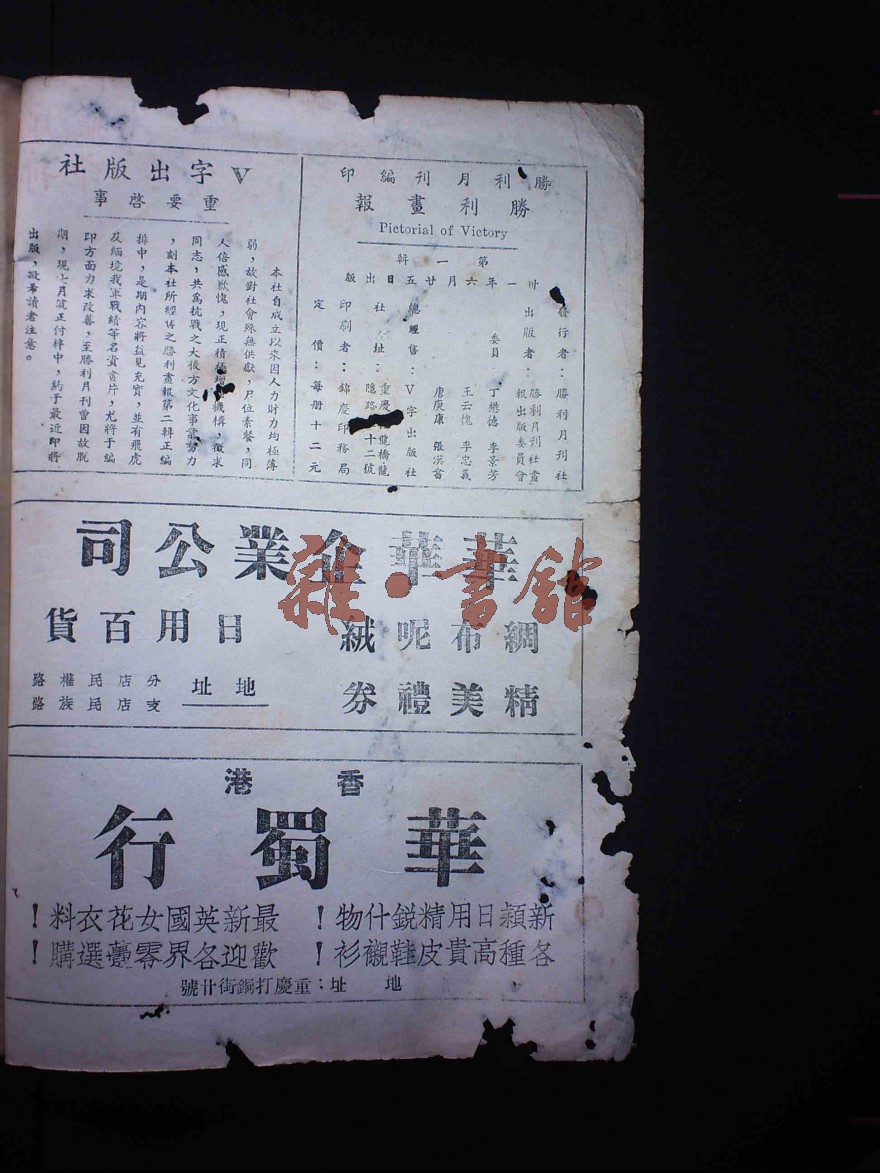 勝利月刊編印
勝利畫報
Pictorial of Victory
第一輯
卅一年六月廿五日出版
發行者：勝利月刊社
出版者：勝利月刊社畫報出版委員會
委員 丁懋德 李景芳
王云槐 李忠義
唐庚康 張漢當
總經售：V字出版社
社址：重慶 龍橋龍隱路 十二號
印刷者：錦慶印務局
定價：每册十二元
V字出版社
重要啓事
本社自成立以來因人力財力均極薄
弱，故對社會殊無供獻，尸位素餐，同
人倍感歉愧，現正積極增 機構，徵求
同志，共爲抗戰之大後方文化事業努力
，刻本社所經售之勝利畫報第二輯正編
排中，是期內容將益見充實，並有飛虎
及緬境我軍戰績等名貴畫片，尤將于編
印方面力求改善，至勝利月刊曾因故脫
期，現七月號正付梓中，約于最近即將
出版，敬希讀者注意。
華華企業公司
綢布呢絨 日用百貨
精美禮券
地址
分店民權路
支店民族路
香港
華蜀行
新穎日用精銳什物！
最新英國女花衣料！
各種高貴皮鞋襯衫！
歡迎各界零躉選購！
地址：重慶打銅街廿號
雜·書館